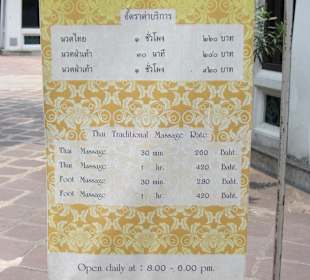 อัตราค่าบริการ
นวดไทย ๑ ชั่วโมง ๒๖๐ บาท
นวดฝ่าเท้า ๓๐ นาที ๒๘๐ บาท
นวดฝ่าเท้า ๑ ชั่วโมง ๔๒๐ บาท
Thai Traditional Massage Rate
Thai Massage 30 min 260 Baht.
Thai Massage 1 hr. 420 Baht.
Foot Massage 30 min 280 Baht.
Foot Massage 1 hr. 420 Baht.
Open daily at : 8.00 - 6.00 pm.